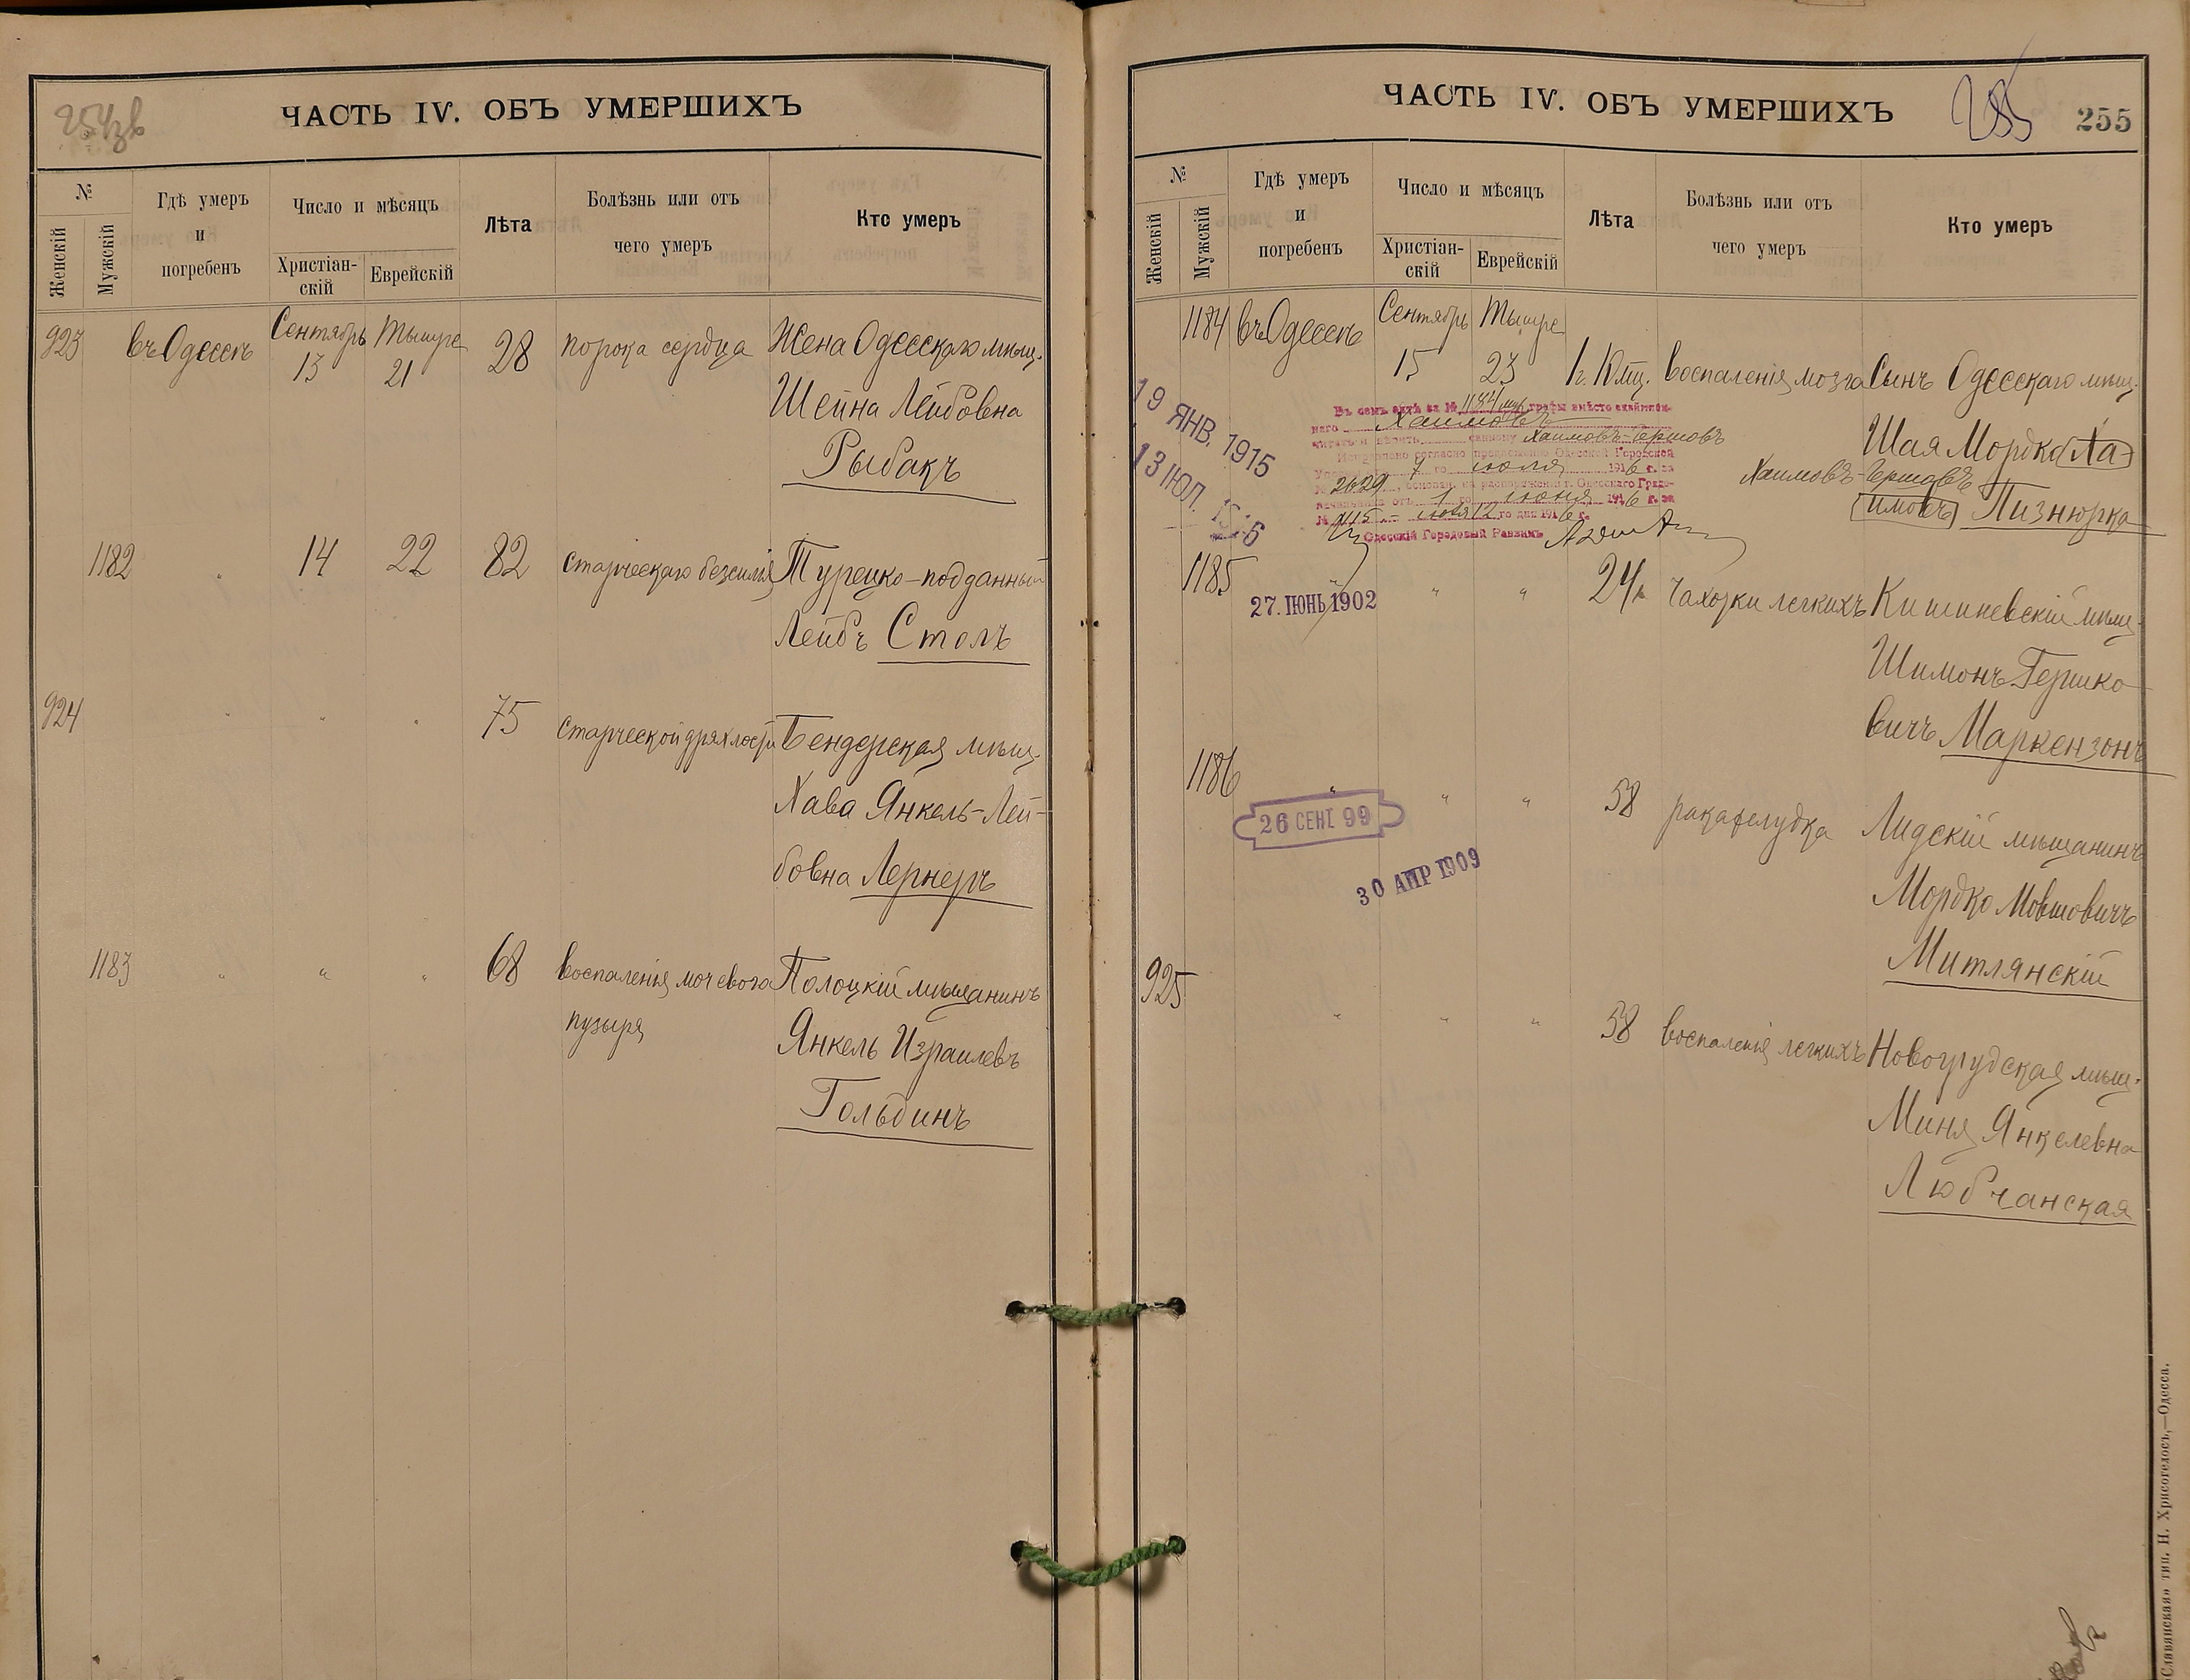 ЧАСТЬ IV. ОБЪ УМЕРШИХЪ
№
Женскій
Мужскій
Гдѣ умеръ
и
погребенъ
Число и мѣсяцъ
Христіан-
скій
Еврейскій
Лѣта
Болѣзнь или отъ
чего умеръ
Кто умеръ
923 въ Одессѣ Сентябрь 13 Тышре 21 28 порока сердца Жена Одесскаго мѣщ.
Шейна Лейбовна
Рыбакъ
1182 " 14 22 82 старческаго безсилія Турецко-подданный
Лейбъ Столъ
924 " " " 75 старческой дряхлости Бендерская мѣщ.
Хава Янкель-Лей-
бовна Лернеръ
1183 " " " 68 воспаленія мочевого Полоцкій мѣщанинъ
пузыря Янкель Израилевъ
Гольдинъ
ЧАСТЬ IV. ОБЪ УМЕРШИХЪ
255
255
№
Женскій
Мужскій
Гдѣ умеръ
и
погребенъ
Число и мѣсяцъ
Христіан-
скій
Еврейскій
Лѣта
Болѣзнь или отъ
чего умеръ
Кто умеръ
1184 въ Одессѣ Сентябрь 15 Тышре 23 воспаленія мозга Сынъ Одесскаго мѣщ.
Шая Мордко Ха-
Хаимовъ-Гершовъ
имовъ Пизнюрка
19 ЯНВ. 1915
13 ІЮЛ. 1916
Въ семъ актѣ за № 1184 муж. графы вмѣсто
Хаимовъ
Хаимовъ-Гершовъ
Исправлено согласно предложенію Одесской Городской
7 го іюля 1916 г. за
№ 2629, основан. на распоряженіи г. Одесскаго Градо-
начальника отъ 1 го іюня 1916 г. за
№ іюля 12 го дня 1916 г.
Одесскій Городовой Раввинъ
1185 " " " 24 чахотки легкихъ Кишиневскій мѣщ.
27. ІЮНЬ 1902
Шимонъ Гершко-
вичъ Маркензонъ
1186 " " " 58 рака желудка Лидскій мѣщанинъ
26 СЕНТ. 99
30 АПР 1909
Мордко Мовшовичъ
Митлянскій
925 " " " 58 воспаленія легкихъ Новогрудская мѣщ.
Миня Янкелевна
Любчанская
«Славянская» тип. Н. Хрисогелосъ,—Одесса.